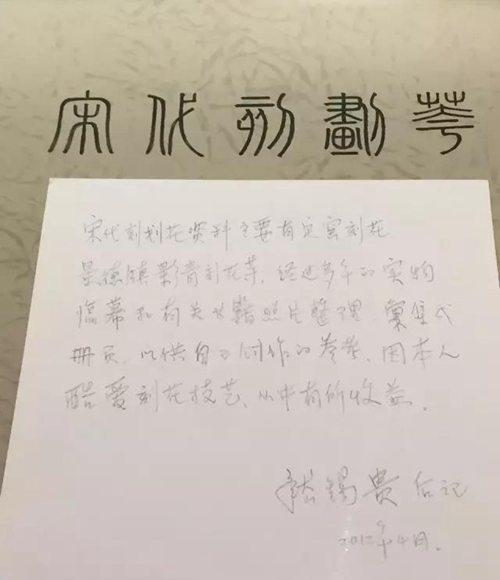 宋代刻劃花
宋代刻划花资料主要有定窑刻花
景德镇影青刻花等，经过多年的实物
临幕和有关书籍照片整理，彙集成
册页，以供自己创作的参考，因本人
酷爱刻花技艺，从中有所收益。
嵇锡贵 后记
2012